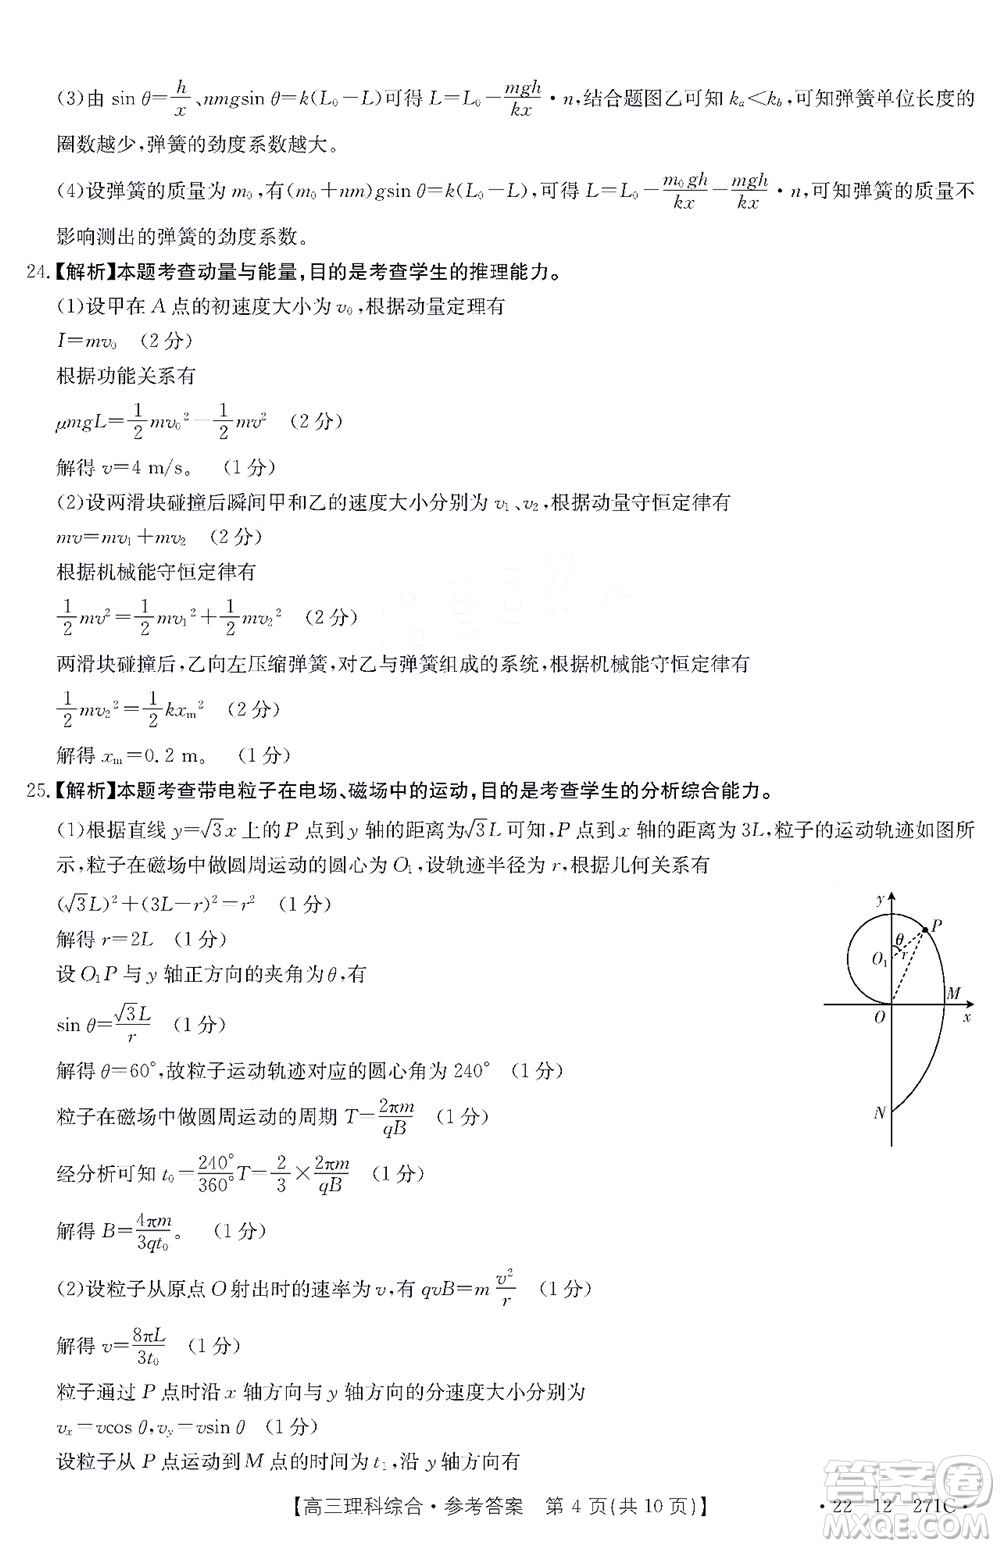 (3)由 sin θ=h/x、nmgsin θ=k(L₀-L)可得 L=L₀-mgh/kx·n,结合题图乙可知 kₐ<k_b,可知弹簧单位长度的
圈数越少,弹簧的劲度系数越大。
(4)设弹簧的质量为 m₀,有(m₀+nm)gsin θ=k(L₀-L),可得 L=L₀-m₀gh/kx-mgh/kx·n,可知弹簧的质量不
影响测出的弹簧的劲度系数。
24.【解析】本题考查动量与能量,目的是考查学生的推理能力。
(1)设甲在 A 点的初速度大小为 v₀,根据动量定理有
I=mv₀ (2分)
根据功能关系有
μmgL=1/2mv₀²-1/2mv² (2分)
解得 v=4 m/s。 (1分)
(2)设两滑块碰撞后瞬间甲和乙的速度大小分别为 v₁、v₂,根据动量守恒定律有
mv=mv₁+mv₂ (2分)
根据机械能守恒定律有
1/2mv²=1/2mv₁²+1/2mv₂² (2分)
两滑块碰撞后,乙向左压缩弹簧,对乙与弹簧组成的系统,根据机械能守恒定律有
1/2mv₂²=1/2kxₘ² (2分)
解得 xₘ=0.2 m。 (1分)
25.【解析】本题考查带电粒子在电场、磁场中的运动,目的是考查学生的分析综合能力。
(1)根据直线 y=√3x 上的 P 点到 y 轴的距离为√3L 可知,P 点到 x 轴的距离为 3L,粒子的运动轨迹如图所
示,粒子在磁场中做圆周运动的圆心为 O₁,设轨迹半径为 r,根据几何关系有
(√3L)²+(3L-r)²=r² (1分)
解得 r=2L (1分)
设 O₁P 与 y 轴正方向的夹角为 θ,有
sin θ=√3L/r (1分)
解得 θ=60°,故粒子运动轨迹对应的圆心角为 240° (1分)
粒子在磁场中做圆周运动的周期 T=2πm/qB (1分)
经分析可知 t₀=240°/360°T=2/3×2πm/qB (1分)
解得 B=4πm/3qt₀。 (1分)
y
P
θ
r
O₁
M
O
x
N
(2)设粒子从原点 O 射出时的速率为 v,有 qvB=m v²/r (1分)
解得 v=8πL/3t₀ (1分)
粒子通过 P 点时沿 x 轴方向与 y 轴方向的分速度大小分别为
vₓ=vcos θ,v_y=vsin θ (1分)
设粒子从 P 点运动到 M 点的时间为 t₁,沿 y 轴方向有
【高三理科综合·参考答案 第 4 页(共 10 页)】
·22-12-271C·
答案圈
MXQE.COM